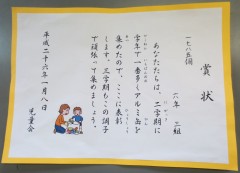 一七八五個
賞状
六年 三組
あなたたちは、二学期に
全学年で一番多くアルミ缶を
集めたので、ここに表彰
します。三学期もこの調子
で頑張って集めましょう。
平成二十六年一月八日
児童会